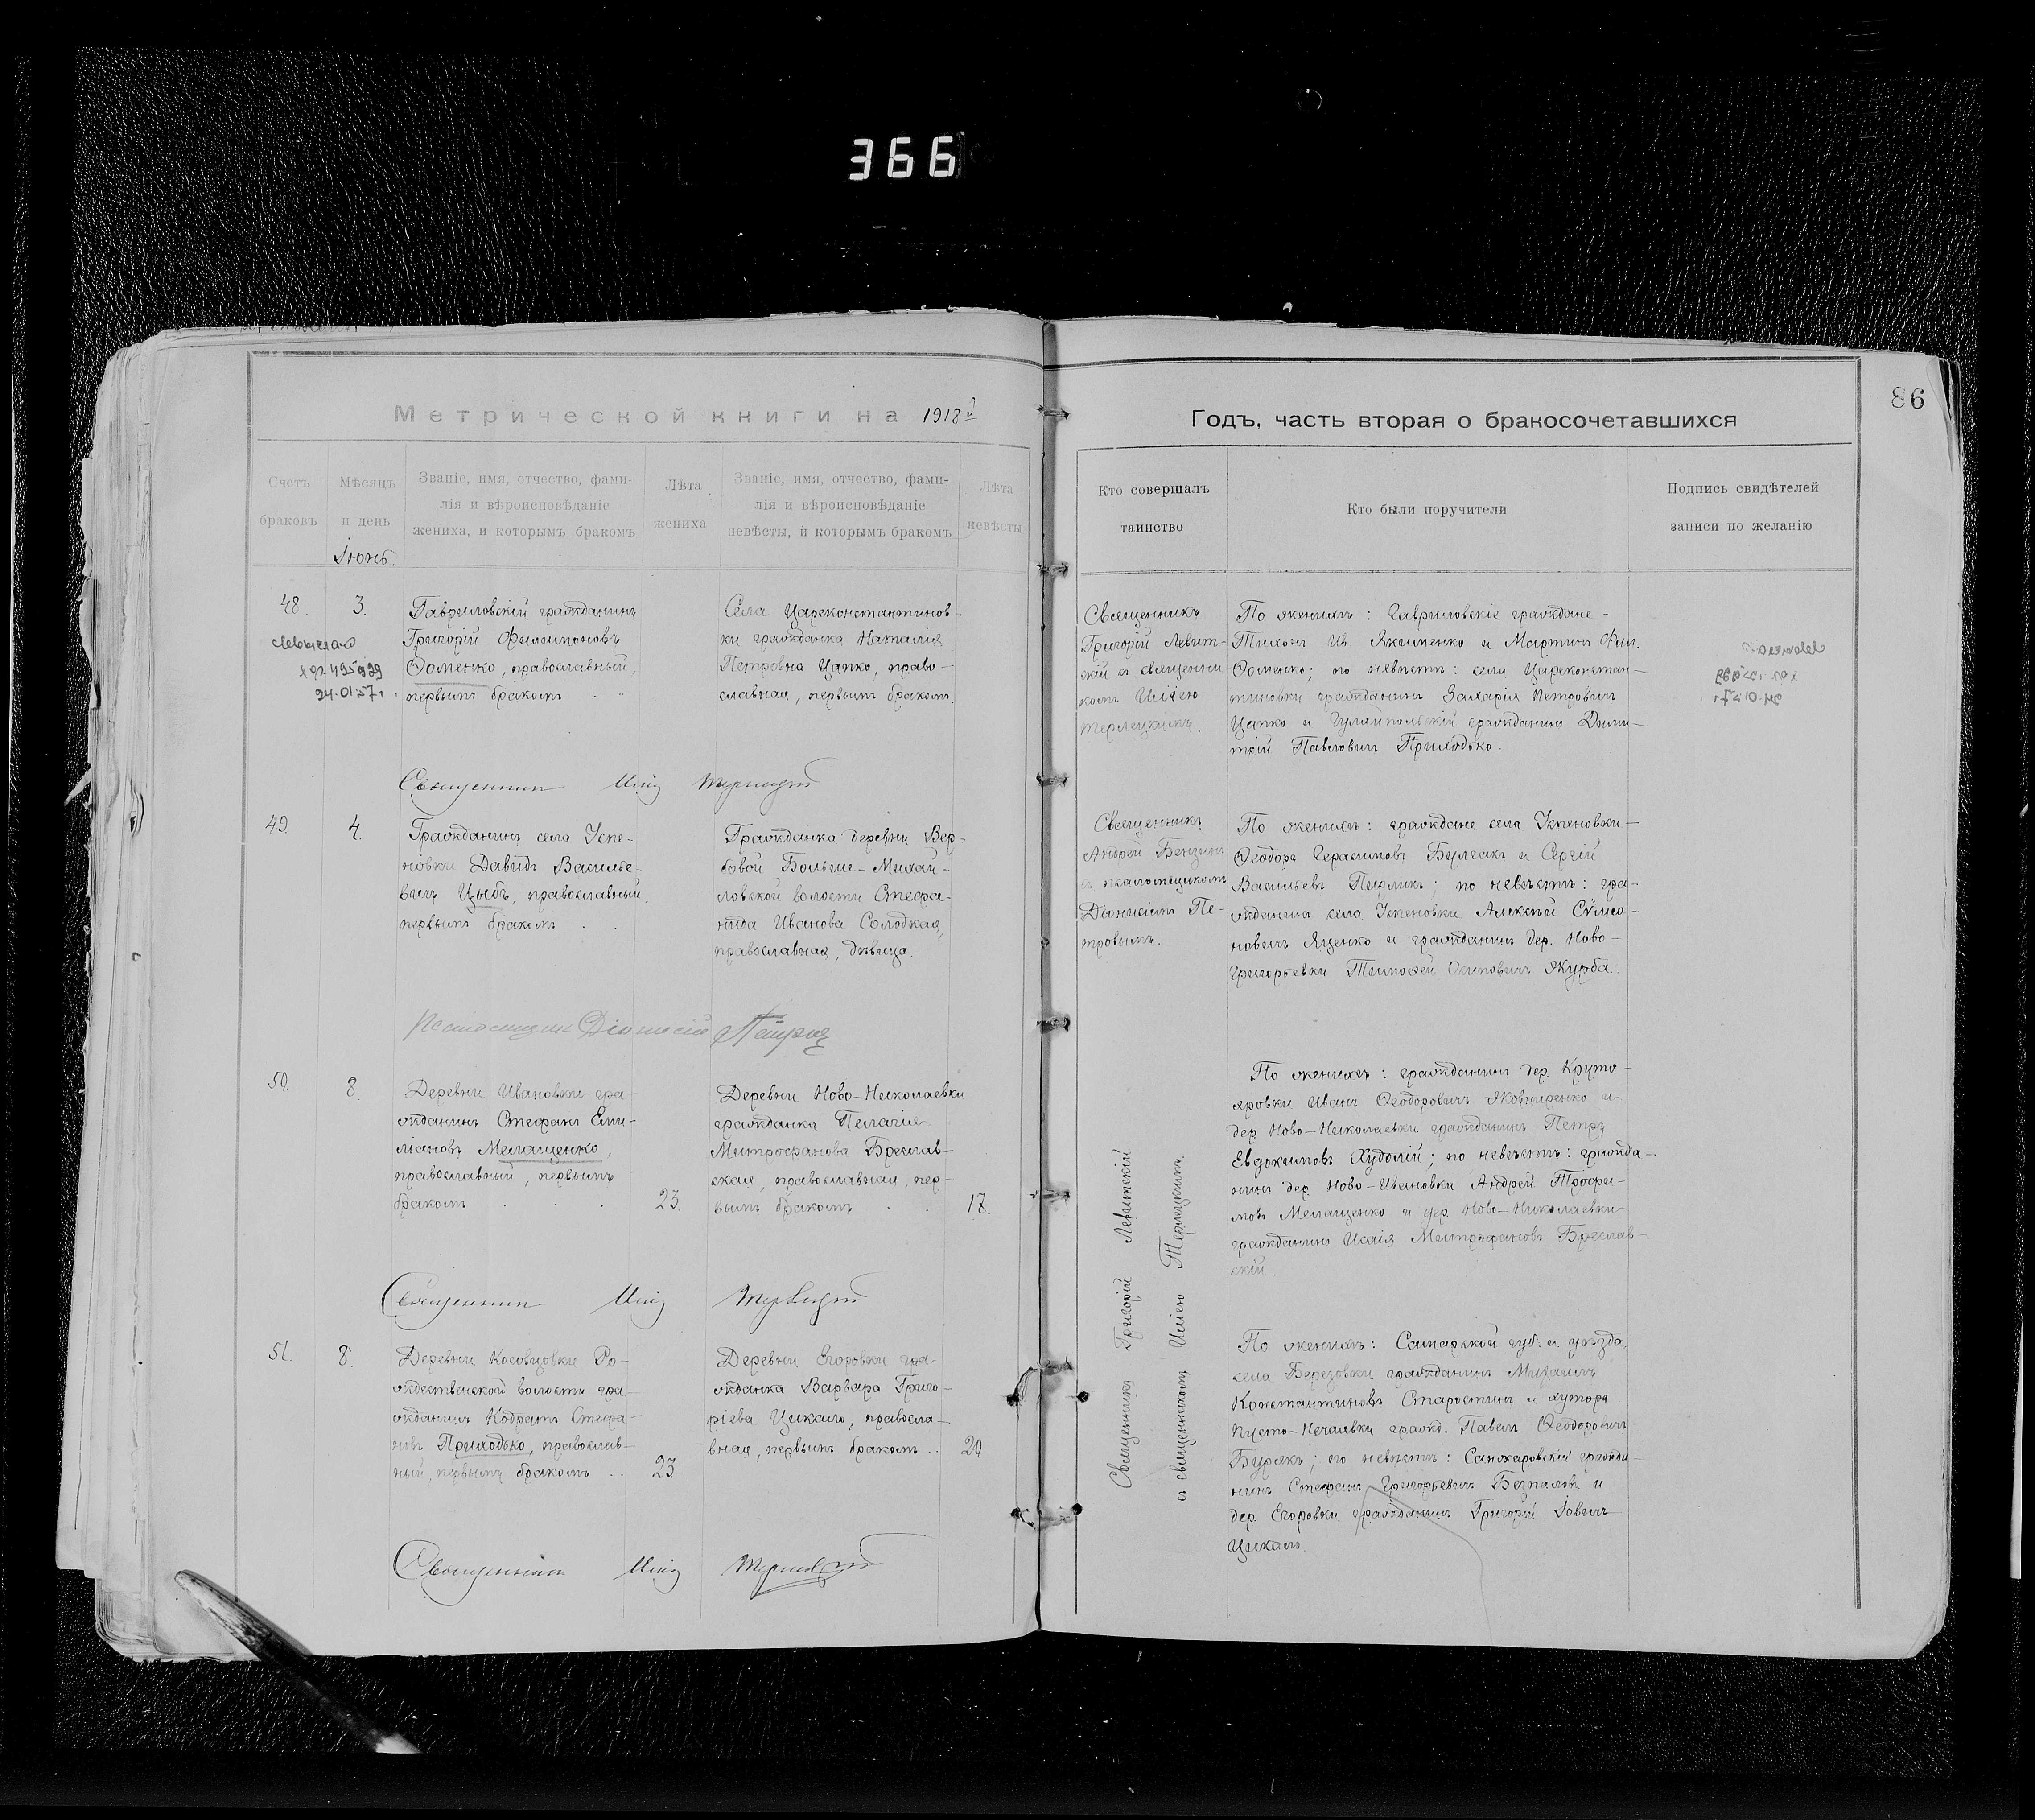 366
86
Метрической книги на 1918й
Годъ, часть вторая о бракосочетавшихся
Счетъ
браковъ
Мѣсяцъ
и день
Званіе, имя, отчество, фами-
лія и вѣроисповѣданіе
жениха, и которымъ бракомъ
Лѣта
жениха
Званіе, имя, отчество, фами-
лія и вѣроисповѣданіе
невѣсты, и которымъ бракомъ
Лѣта
невѣсты
Кто совершалъ
таинство
Кто были поручители
Подпись свидѣтелей
записи по желанію
Іюнь.
48.
3.
Гавриловскій гражданинъ
Григорій Филимоновъ
Ѳоменко, православный,
первымъ бракомъ
Села Цареконстантинов-
ки гражданка Наталія
Петровна Цапко, право-
славная, первымъ бракомъ.
Священникъ
Григорій Левит-
скій съ священни-
комъ Иліею
Терлецкимъ.
По женихѣ: Гавриловскіе граждане
Тихонъ Ив. Якименко и Мартинъ Фил.
Ѳоменко; по невѣстѣ: села Цареконстан-
тиновки гражданинъ Захарія Петровичъ
Цапко и Гуляйпольскій гражданинъ Дими-
трій Павловичъ Приходько.
24.01.71
Священникъ Илія Терлецкій
49.
4.
Гражданинъ села Успе-
новки Давидъ Василье-
вичъ Цыбъ, православный,
первымъ бракомъ
Гражданка деревни Вер-
бовой Больше-Михай-
ловской волости Стефа-
нида Иванова Солодкая,
православная, дѣвица.
Священникъ
Андрей
съ псаломщикомъ
Діонисіемъ Пе-
тровымъ.
По женихѣ: граждане села Успеновки
Ѳеодоръ Герасимовъ Булгакъ и Сергій
Васильевъ; по невѣстѣ: гра-
жданинъ села Успеновки Алексѣй Сѵмео-
новичъ Яценко и гражданинъ дер. Ново-
Григорьевки Тимоѳей Осиповичъ Журба.
Псаломщикъ Діонисій Петровъ
50.
8.
Деревни Ивановки гра-
жданинъ Стефанъ Еми-
ліановъ Мелащенко,
православный, первымъ
бракомъ
23.
Деревни Ново-Николаевки
гражданка Пелагія
Митрофанова Бреслав-
ская, православная, пер-
вымъ бракомъ
17.
Священникъ Григорій Левитскій
съ священникомъ Иліею Терлецкимъ.
По женихѣ: гражданинъ дер. Круто-
яровки Иванъ Ѳеодоровичъ Жовниренко и
дер. Ново-Николаевки гражданинъ Петръ
Евдокимовъ Худолій; по невѣстѣ: гражда-
нинъ дер. Ново-Ивановки Андрей Трофи-
мовъ Мелащенко и дер. Ново-Николаевки
гражданинъ Исаія Митрофановъ Бреслав-
скій.
Священникъ Илія Терлецкій
51.
8.
Деревни Косовцовки Ро-
ждественской волости гра-
жданинъ Кодратъ Стефа-
новъ Приходько, православ-
ный, первымъ бракомъ
23.
Деревни Егоровки гра-
жданка Варвара Григо-
ріева Цикало, правосла-
вная, первымъ бракомъ
20
По женихѣ: Самарской губ. и уѣзда,
села Березовки гражданинъ Михаилъ
Константиновъ Старостинъ и хутора
Пусто-Нечаевки гражд. Павелъ Ѳеодоровичъ
Бурякъ; по невѣстѣ: Санжаровскій гражда-
нинъ Стефанъ Григорьевичъ Безпаловъ и
дер. Егоровки гражданинъ Григорій Іовичъ
Цикало.
Священникъ Илія Терлецкій